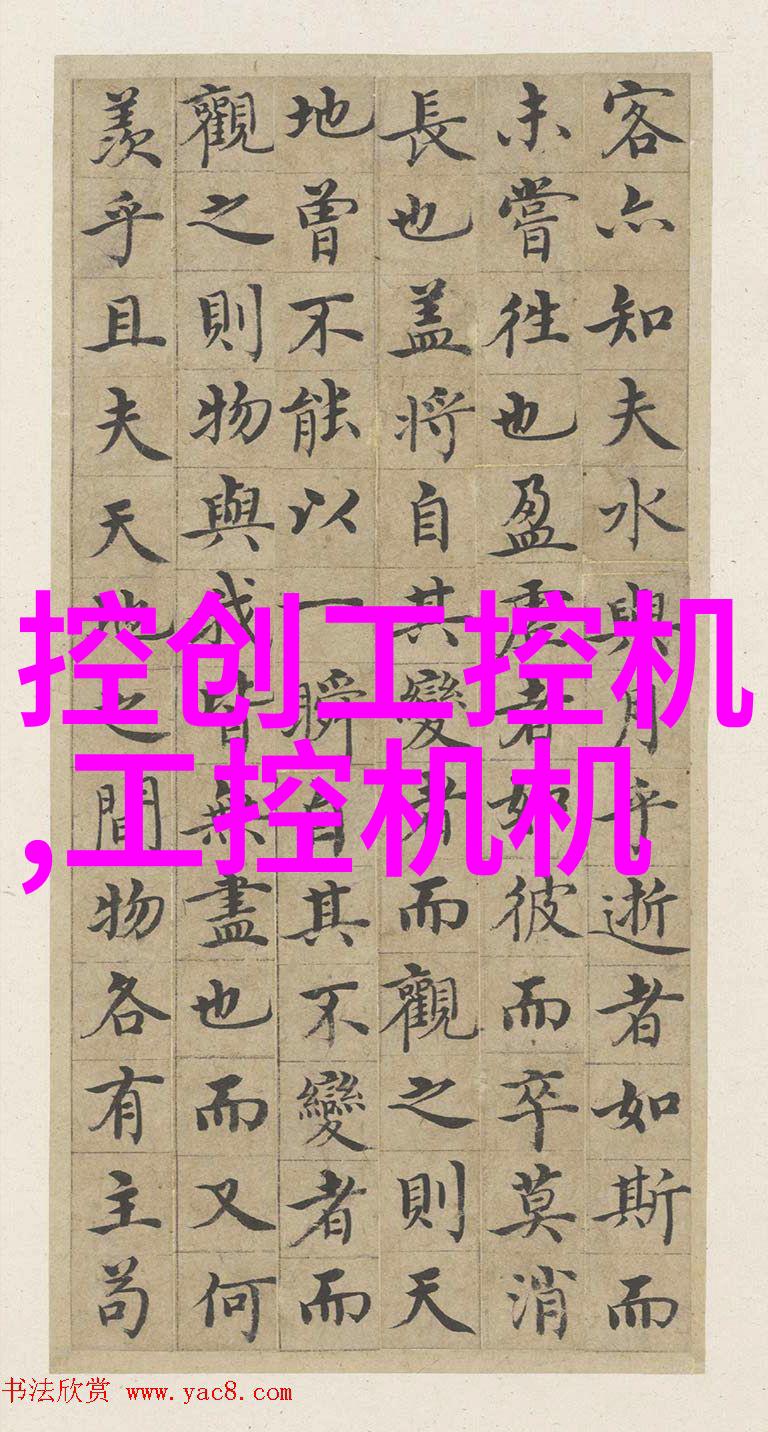 客亦知夫水與月乎逝者如斯而
未嘗往也盈虛者如彼而卒莫消
長也盖将自其變者而觀之則天
地曾不能以一瞬自其不變者而
觀之則物與我皆無盡也而又何
羨乎且夫天地之間物各有主苟
控创工控机
,工控机机
书法欣赏 www.yac8.com